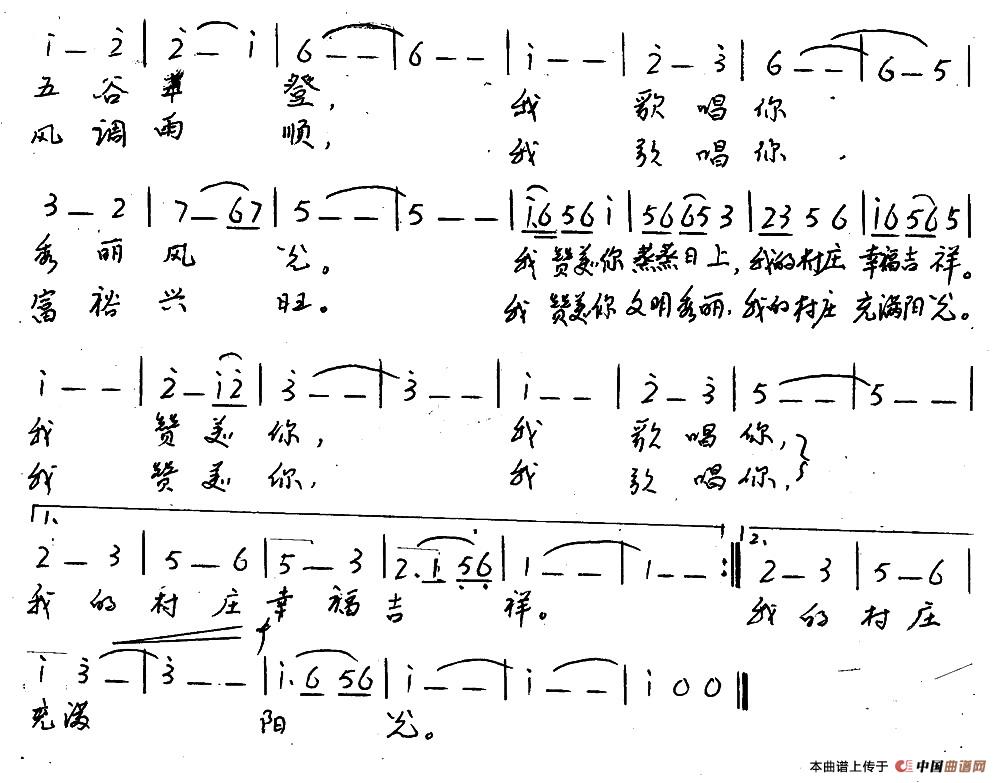 i — 2 | 2 — i | 6 — — | 6 — — | i — — | 2 — 3 | 6 — — | 6 — 5 |
五 谷 丰 登， 我 歌 唱 你
风 调 雨 顺， 我 歌 唱 你
3 — 2 | 7 — 6 7 | 5 — — | 5 — — | i. 6 5 6 i | 5 6 6 5 3 | 2 3 5 6 | i 6 5 6 5 |
秀 丽 风 光。 我 赞美你 蒸蒸日上，我的村庄 幸福吉祥。
富 裕 兴 旺。 我 赞美你 文明秀丽，我的村庄 充满阳光。
i — — | 2 — i 2 | 3 — — | 3 — — | i — — | 2 — 3 | 5 — — | 5 — — |
我 赞 美 你， 我 歌 唱 你，
我 赞 美 你， 我 歌 唱 你，
1.
2 — 3 | 5 — 6 | 5 — 3 | 2. 1 5 6 | 1 — — | 1 — — :|| 2. 2 — 3 | 5 — 6 |
我 的 村 庄 幸 福 吉 祥。 我 的 村 庄
f
i 3 — | 3 — — | i. 6 5 6 | i — — | i — — | i 0 0 ||
充 满 阳 光。
本曲谱上传于 中国曲谱网